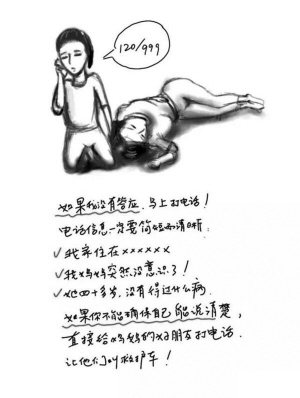 120/999
如果我没有答应,马上打电话!
电话信息一定要简短而清晰:
✓我家住在xxxxxx
✓我妈妈突然没意识了!
✓她四十多岁,没有得过什么病.
如果你不能确保自己能说清楚,
直接给妈妈的好朋友打电话.
让他们叫救护车!